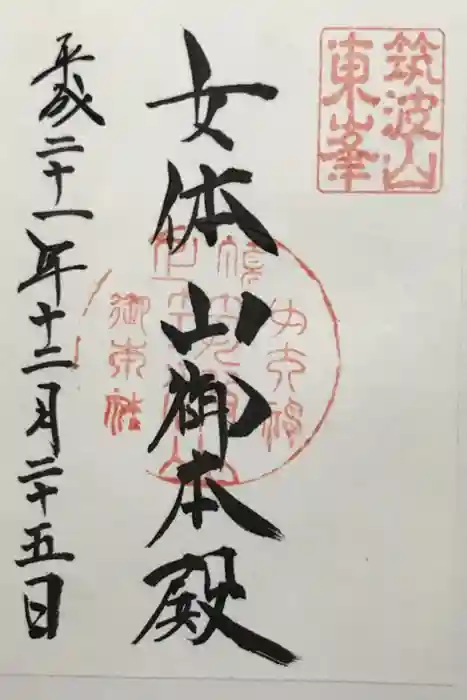 筑波山
東峯
女体山御本殿
平成二十一年十二月二十五日
御本社